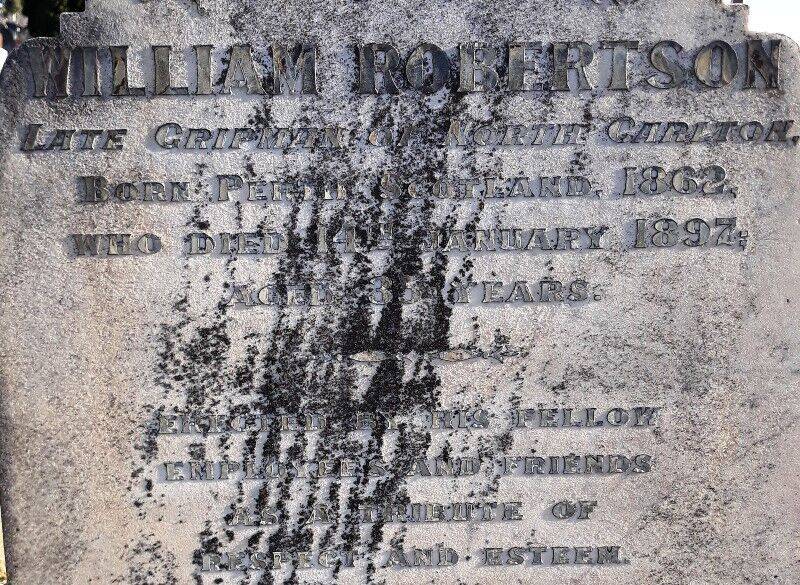 WILLIAM ROBERTSON
LATE GRIPMAN OF NORTH CARLTON,
BORN PERTH SCOTLAND, 1862,
WHO DIED 14TH JANUARY 1897,
AGED 35 YEARS.
ERECTED BY HIS FELLOW
EMPLOYEES AND FRIENDS
AS A TRIBUTE OF
RESPECT AND ESTEEM.